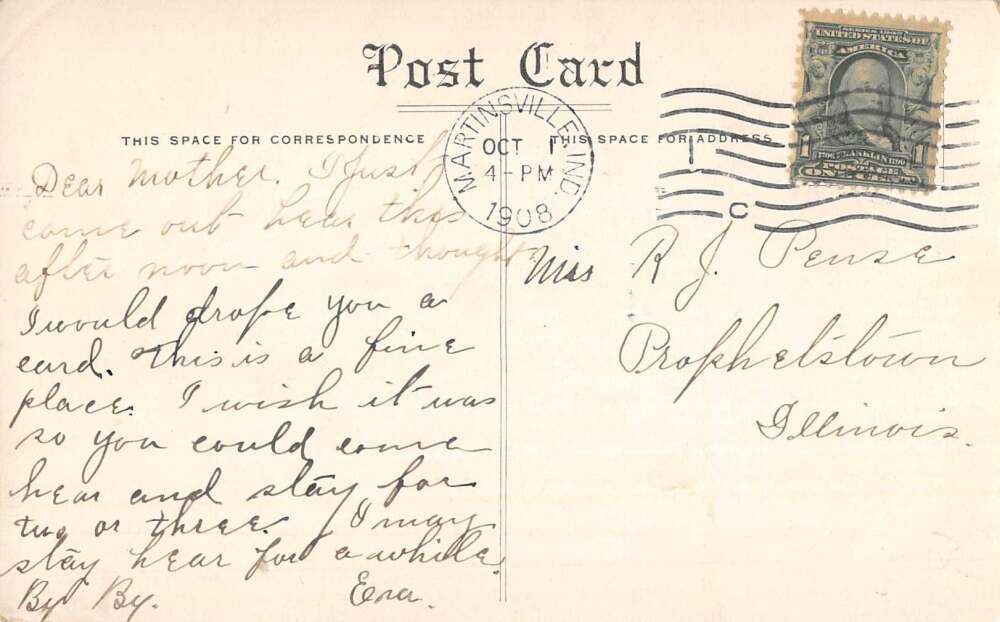 Post Card
THIS SPACE FOR CORRESPONDENCE
THIS SPACE FOR ADDRESS
MARTINSVILLE, IND.
OCT 1
4-PM
1908
C
SERIES 1902
UNITED STATES OF
AMERICA
1706 FRANKLIN 1790
1 POSTAGE 1
ONE CENT
Dear Mother. I just
come out hear this
after noon and thought
I would drope you a
card. This is a fine
place. I wish it was
so you could come
hear and stay for
two or three. I may
stay hear for a while.
By By. Era.
Miss R J. Pense
Prophetstown
Illinois.